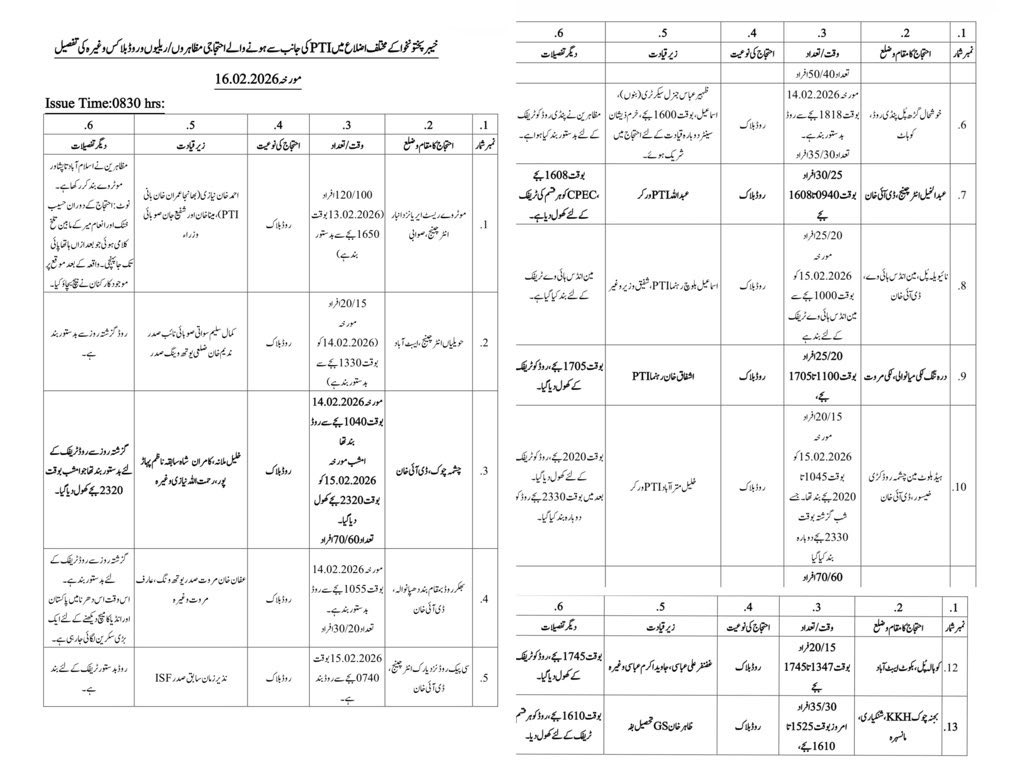 خیبر پختونخوا کے مختلف اضلاع میں PTI کی جانب سے ہونے والے احتجاجی مظاہروں/ریلیوں و روڈ بلاکس وغیرہ کی تفصیل
مورخہ 16.02.2026
Issue Time:0830 hrs:
1. 2. 3. 4. 5. 6.
نمبر شمار احتجاج کا مقام و ضلع وقت/تعداد احتجاج کی نوعیت زیر قیادت دیگر تفصیلات
1.
موٹروے ریسٹ ایریا نزد انبار
انٹر چینج، صوابی
120/100افراد
(13.02.2026 بوقت
1650 بجے سے بدستور
بند ہے)
روڈ بلاک
احمد خان نیازی (بھانجا عمران خان بانی
PTI)، مینا خان اور شفیع جان صوبائی
وزراء
مظاہرین نے اسلام آباد تا پشاور
موٹروے بند کر رکھا ہے۔
نوٹ: احتجاج کے دوران حسیب
خٹک اور انعام میر کے مابین تلخ
کلامی ہوئی جو بعد ازاں ہاتھا پائی
تک جا پہنچی۔ واقعہ کے بعد موقع پر
موجود کارکنان نے بیچ بچاؤ کیا۔
2.
حویلیاں انٹر چینج، ایبٹ آباد
20/15افراد
مورخہ
(14.02.2026 کو
بوقت 1330 بجے سے
بدستور بند ہے)
روڈ بلاک
کمال سلیم سواتی صوبائی نائب صدر
ندیم خان ضلعی یوتھ ونگ صدر
روڈ گزشتہ روز سے بدستور بند
ہے۔
3.
چشمہ چوک، ڈی آئی خان
مورخہ 14.02.2026
بوقت 1040 بجے سے روڈ
بند تھا
امشب مورخہ
15.02.2026 کو
بوقت 2320 بجے کھول
دیا گیا۔
تعداد 70/60افراد
روڈ بلاک
خلیل ملانہ، کامران شاہ سابقہ ناظم پہاڑ
پور، رحمت اللہ نیازی وغیرہ
گزشتہ روز سے روڈ ٹریفک کے
لئے بدستور بند تھا جو امشب بوقت
2320 بجے کھول دیا گیا۔
4.
بھکر روڈ بمقام بند دھپانوالہ،
ڈی آئی خان
مورخہ 14.02.2026
بوقت 1055 بجے سے روڈ
بدستور بند ہے۔
تعداد 30/20افراد
روڈ بلاک
عفان خان مروت صدر یوتھ ونگ، عارف
مروت وغیرہ
گزشتہ روز سے روڈ ٹریفک کے
لئے بدستور بند ہے۔
اس وقت اس دھرنا میں پاکستان
اور انڈیا کا میچ دیکھنے کے لئے ایک
بڑی سکرین لگائی جا رہی ہے۔
5.
سی پیک روڈ نزد یارک انٹر چینج،
ڈی آئی خان
15.02.2026 بوقت
0740 بجے سے روڈ بند
ہے۔
روڈ بلاک
نذیر زمان سابق صدر ISF
روڈ بدستور ٹریفک کے لئے بند
ہے۔
1. 2. 3. 4. 5. 6.
نمبر شمار احتجاج کا مقام و ضلع وقت/تعداد احتجاج کی نوعیت زیر قیادت دیگر تفصیلات
تعداد 50/40افراد
6.
خوشحال گڑھ پل پنڈی روڈ،
کوہاٹ
مورخہ 14.02.2026
بوقت 1818 بجے سے روڈ
بدستور بند ہے۔
تعداد 35/30افراد
روڈ بلاک
ظہیر عباس جنرل سیکرٹری (بنوں)،
اسماعیل، بوقت 1600 بجے، خرم ذیشان
سینٹر دوبارہ قیادت کے لئے احتجاج میں
شریک ہوئے۔
مظاہرین نے پنڈی روڈ کو ٹریفک
کے لئے بدستور بند کیا ہوا ہے۔
7.
عبدالخیل انٹر چینج، ڈی آئی خان
30/25افراد
بوقت 0940 تا 1608
بجے
روڈ بلاک
عبداللہ PTI ورکر
بوقت 1608 بجے
CPEC، کو ہر قسم کی ٹریفک
کے لئے کھول دیا ہے۔
8.
ٹائیویلہ پل، مین انڈس ہائی وے،
ڈی آئی خان
25/20افراد
مورخہ
15.02.2026 کو
بوقت 1000 بجے سے
مین انڈس ہائی وے ٹریفک
کے لئے بند ہے
روڈ بلاک
اسماعیل بلوچ رہنما PTI، شفیق وزیر وغیر
مین انڈس ہائی وے ٹریفک
کے لئے بند کیا گیا ہے۔
9.
درہ تنگ لکی میانوالی، لکی مروت
25/20افراد
بوقت 1100 تا 1705
بجے،
روڈ بلاک
اشفاق خان رہنما PTI
بوقت 1705 بجے، روڈ کو ٹریفک
کے کھول دیا گیا۔
10.
ہیڈ بلوٹ مین چشمہ روڈ کڑی
خیسور، ڈی آئی خان
20/15افراد
مورخہ
15.02.2026 کو
بوقت 1045 تا
2020 بجے بند تھا۔ جسے
شب گزشتہ بوقت
2330 بجے دوبارہ
بند کیا گیا
روڈ بلاک
خلیل متر آباد PTI ورکر
بوقت 2020 بجے، روڈ کو ٹریفک
کے لئے کھول دیا گیا۔
بعد میں بوقت 2330 بجے روڈ کو
دوبارہ بند کیا گیا۔
70/60افراد
1. 2. 3. 4. 5. 6.
نمبر شمار احتجاج کا مقام و ضلع وقت/تعداد احتجاج کی نوعیت زیر قیادت دیگر تفصیلات
12.
کوہالہ پل، بکوٹ ایبٹ آباد
20/15افراد
بوقت 1347 تا 1745
بجے
روڈ بلاک
غضنفر علی عباسی، جاوید اکرم عباسی وغیرہ
بوقت 1745 بجے، روڈ کو ٹریفک
کے کھول دیا گیا۔
13.
بجنہ چوک KKH، شنکیاری،
مانسہرہ
35/30افراد
امروز بوقت 1525 تا
1610 بجے،
روڈ بلاک
ظاہر خان GS تحصیل بفہ
بوقت 1610 بجے، روڈ کو ہر قسم
ٹریفک کے لئے کھول دیا۔